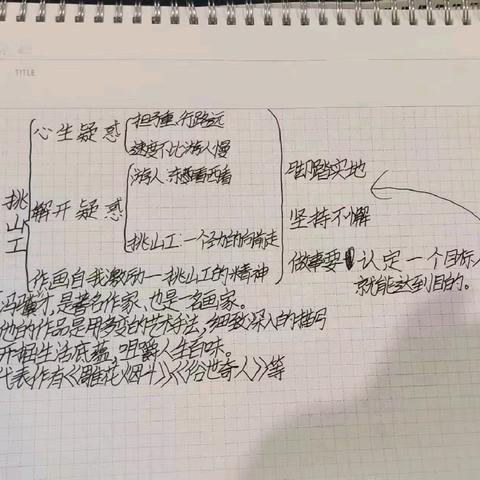 TITLE
心生疑惑
担子重,行路远
速度不比游人慢
挑山工
解开疑惑
游人:东看看西看看
挑山工:一个劲的向前走
作画自我激励—挑山工的精神
脚踏实地
坚持不懈
做事要认定一个目标
就能达到目的。
冯骥才,是著名作家、也是一名画家。
他的作品是用多变的艺术手法,细致深入的描写
开掘生活底蕴,咀嚼人生百味。
代表作有《雕花烟斗》《俗世奇人》等